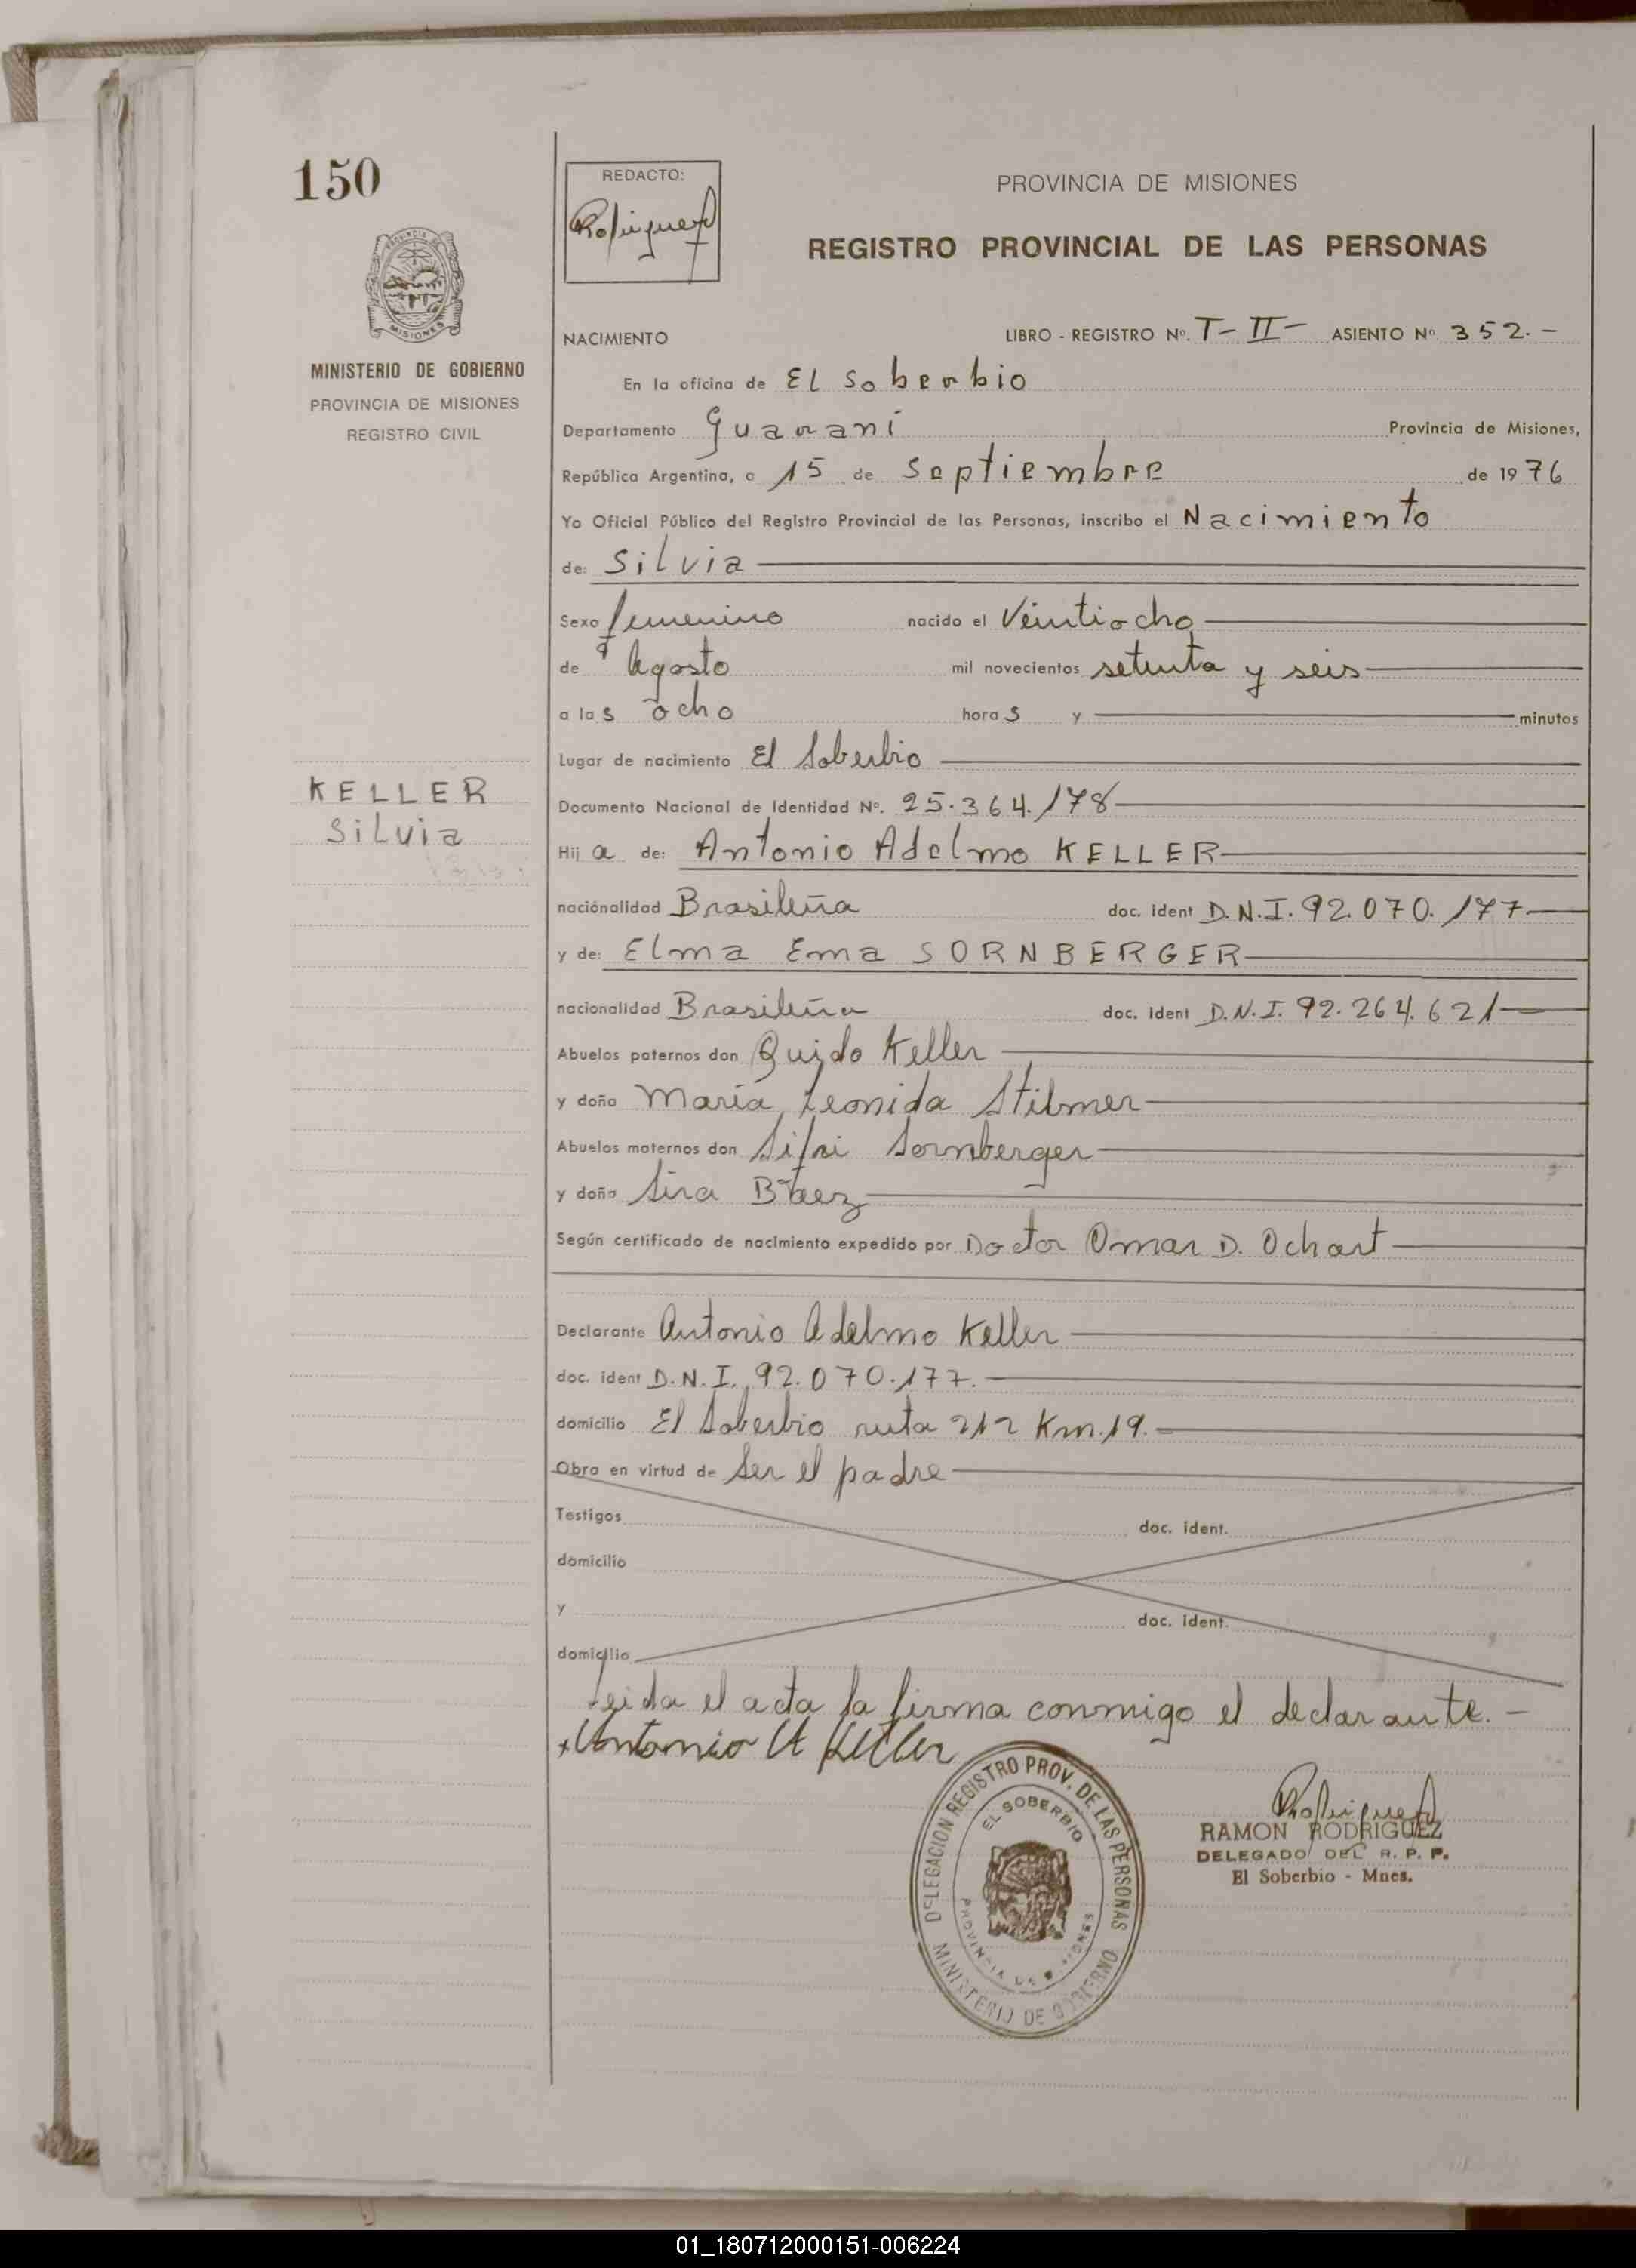 150
REDACTO:
Rodriguez
PROVINCIA DE MISIONES
REGISTRO PROVINCIAL DE LAS PERSONAS
MINISTERIO DE GOBIERNO
PROVINCIA DE MISIONES
REGISTRO CIVIL
NACIMIENTO LIBRO - REGISTRO Nº. T-II- ASIENTO Nº 352.-
En la oficina de El Soberbio
Departamento Guaraní Provincia de Misiones,
República Argentina, a 15 de Septiembre de 1976
Yo Oficial Público del Registro Provincial de las Personas, inscribo el Nacimiento
de: Silvia
Sexo femenino nacido el Veintiocho
de Agosto mil novecientos setenta y seis
a las ocho horas y minutos
Lugar de nacimiento El Soberbio
KELLER
Silvia
Documento Nacional de Identidad Nº. 25.364.178
Hija de: Antonio Adelmo KELLER
nacionalidad Brasileña doc. ident D.N.I. 92.070.177
y de: Elma Ema SORNBERGER
nacionalidad Brasileña doc. ident D.N.I. 92.264.621
Abuelos paternos don Quido Keller
y doña María Leonida Stilmer
Abuelos maternos don Sifri Sornberger
y doña Sira Báez
Según certificado de nacimiento expedido por Doctor Omar D. Ochart
Declarante Antonio Adelmo Keller
doc. ident D.N.I. 92.070.177.-
domicilio El Soberbio ruta 212 Km.19.-
Obra en virtud de Ser el padre
Testigos doc. ident.
domicilio
y doc. ident.
domicilio
Leida el acta la firma conmigo el declarante.-
Antonio A Keller
DELEGACION REGISTRO PROV. DE LAS PERSONAS
EL SOBERBIO
PROVINCIA DE MISIONES
MINISTERIO DE GOBIERNO
Rodriguez
RAMON RODRIGUEZ
DELEGADO DEL R. P. P.
El Soberbio - Mnes.
01_180712000151-006224